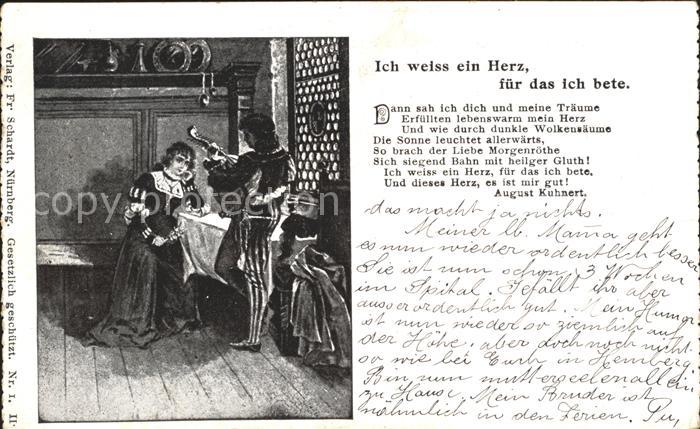 Verlag: Fr. Schardt, Nürnberg. Gesetzlich geschützt. Nr. 1. II.
copyright protection
Ich weiss ein Herz,
für das ich bete.
Dann sah ich dich und meine Träume
Erfüllten lebenswarm mein Herz
Und wie durch dunkle Wolkensäume
Die Sonne leuchtet allerwärts,
So brach der Liebe Morgenröthe
Sich siegend Bahn mit heilger Gluth!
Ich weiss ein Herz, für das ich bete.
Und dieses Herz, es ist mir gut!
August Kuhnert.
das macht ja nichts.
Meiner lb. Mama geht
es nun wieder ordentlich besser
Sie ist nun schon 3 Wochen
im Spital. Gefällt ihr aber
ausserordentlich gut. Mein Humor
ist nun wieder so ziemlich auf
der Höhe, aber doch noch nicht
so wie bei Euch in Hemberg
Bin nun mutterseelenallein
zu Hause. Mein Bruder ist
nähmlich in den Ferien.